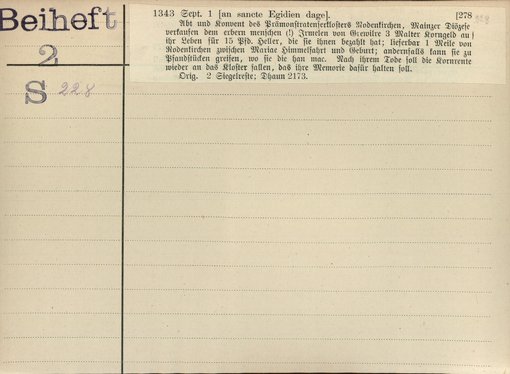 Beiheft
2
S 228
1343 Sept. 1 [an sancte Egidien dage]. [278
Abt und Konvent des Prämonstratenserklosters Rodenkirchen, Mainzer Diözese
verkaufen dem erbern menschen (!) Irmelen von Gewilre 3 Malter Korngeld auf
ihr Leben für 15 Pfd. Heller, die sie ihnen bezahlt hat; lieferbar 1 Meile von
Rodenkirchen zwischen Mariae Himmelfahrt und Geburt; andernfalls kann sie zu
Pfandstücken greifen, wo sie die han mac. Nach ihrem Tode soll die Kornrente
wieder an das Kloster fallen, das ihre Memorie dafür halten soll.
Orig. 2 Siegelreste; Dhaun 2173.